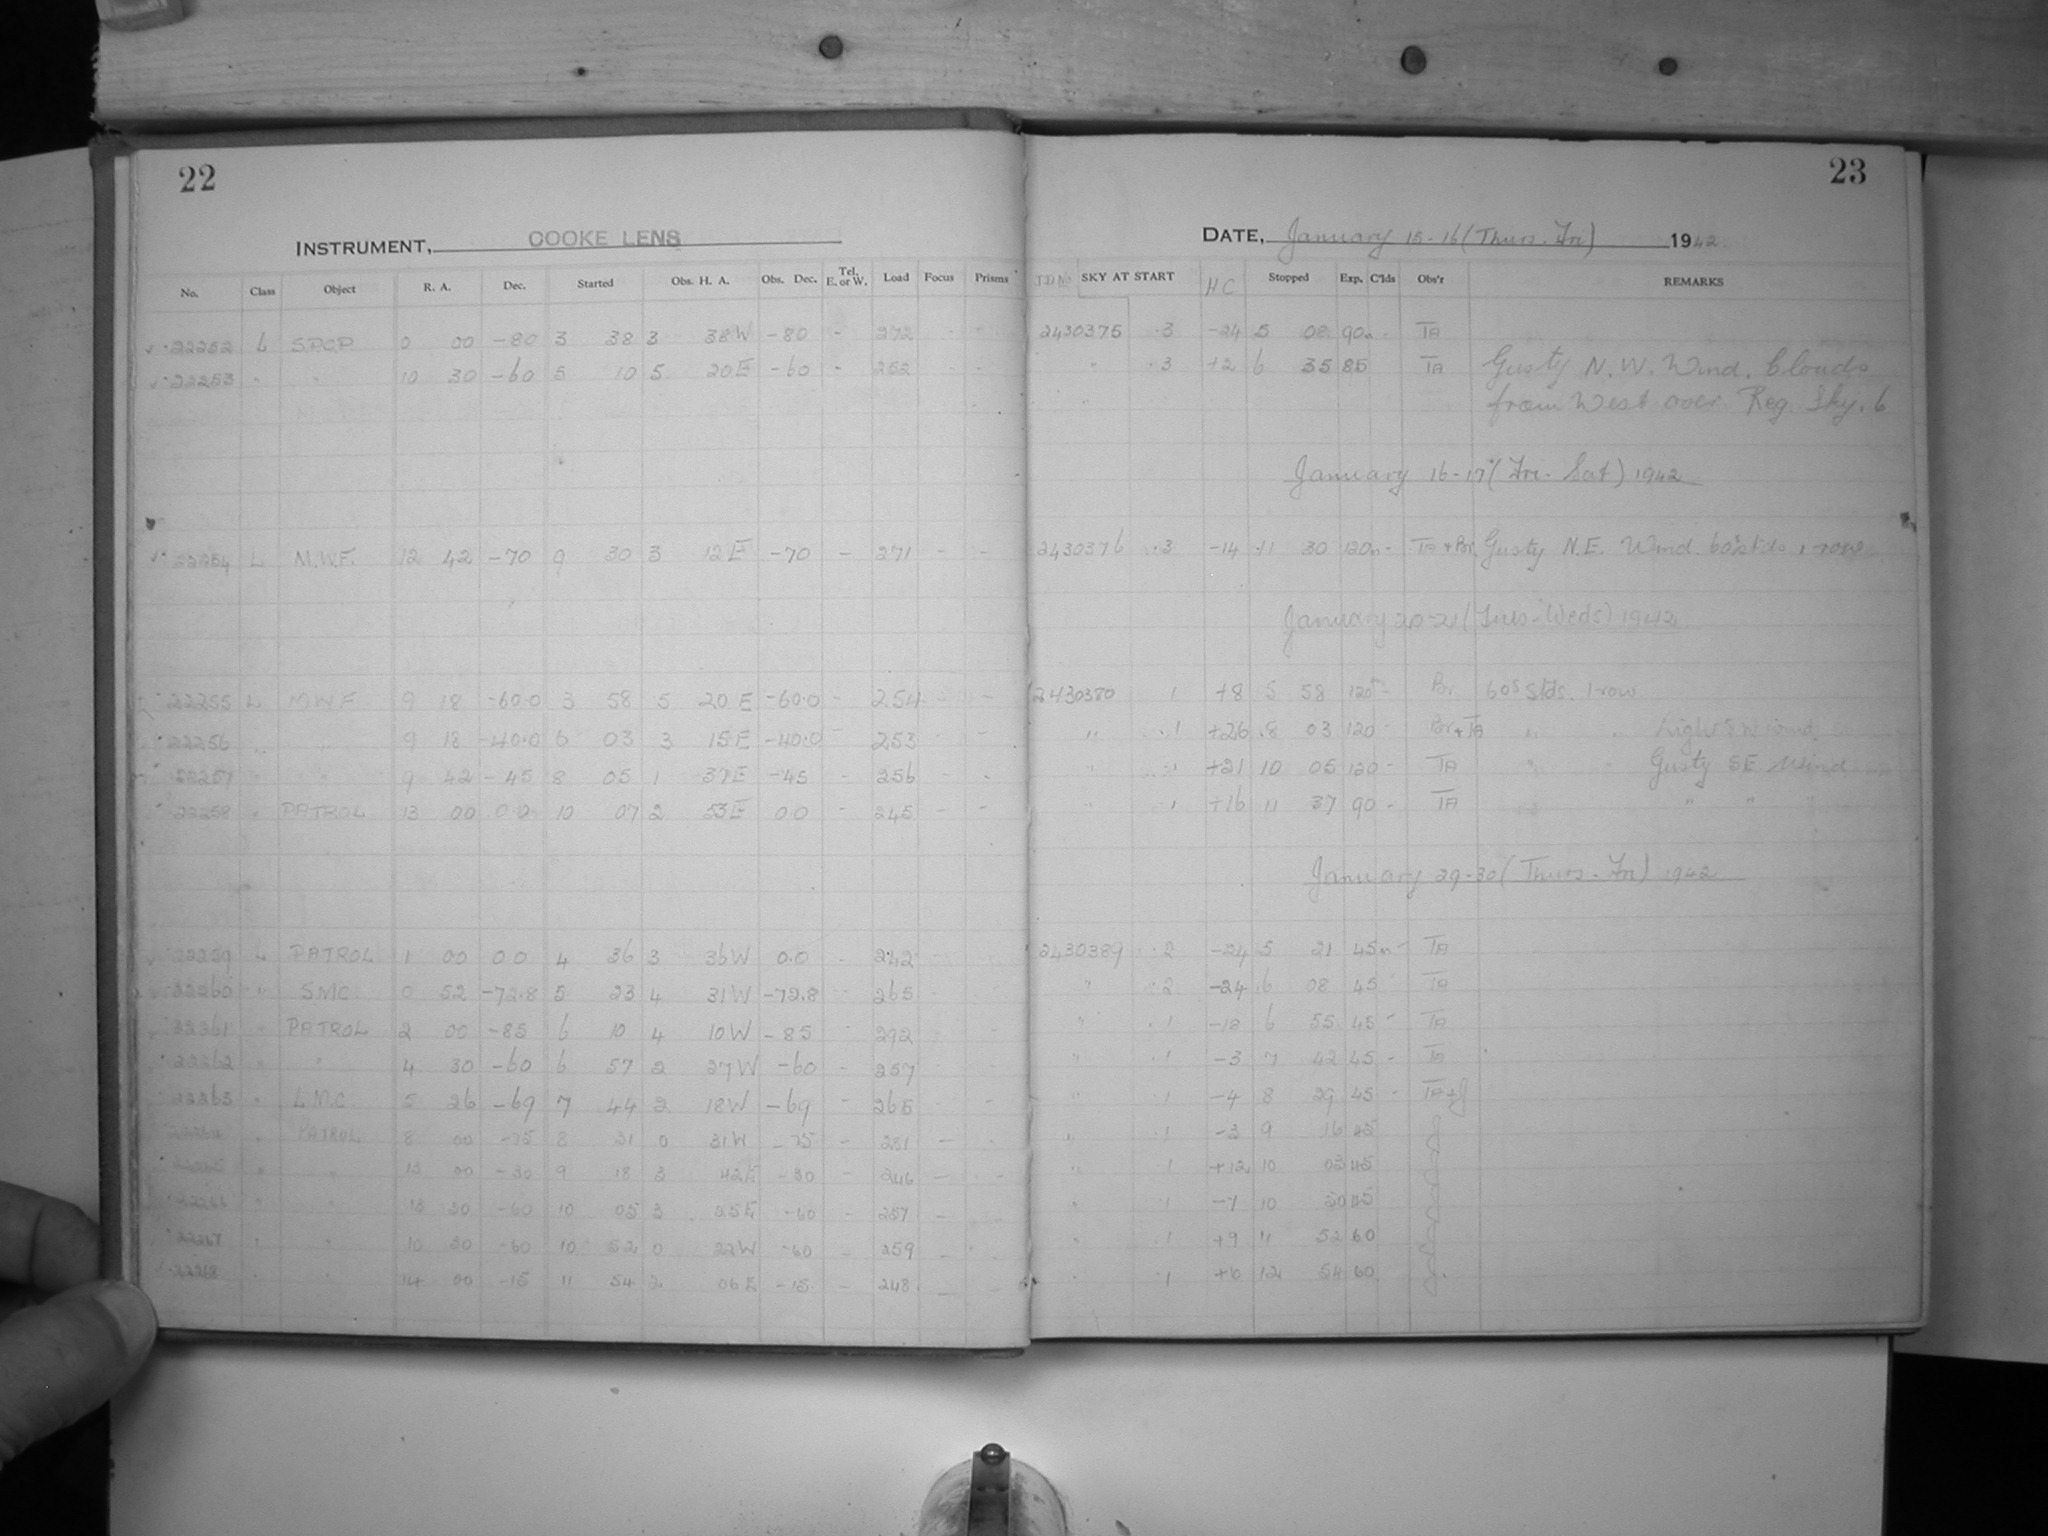 22
23
INSTRUMENT, COOKE LENS
DATE, January 15-16 (Thurs. Fri) 1942
No. Class Object R. A. Dec. Started Obs. H. A. Obs. Dec. Tel. E. or W. Load Focus Prisms J.D. No SKY AT START HC Stopped Exp. C'lds Obs'r REMARKS
22252 L S.P.C.P 0 00 -80 3 38 3 38W -80 - 272 2430375 .3 -24 5 08 90m - TA
22253 " " 10 30 -60 5 10 5 20E -60 - 252 - - " .3 +2 6 35 85 TA Gusty N.W. Wind. Clouds
from West over Reg. Sky. 6
January 16-17 (Fri - Sat) 1942
22254 L M.W.F. 12 42 -70 9 30 3 12E -70 - 271 - - 2430376 .3 -14 11 30 120m - TA + Br. Gusty N.E. Wind. 60s stds 1 row
January 20-21 (Tues-Weds) 1942
22255 L M.W.F 9 18 -60.0 3 58 5 20E -60.0 - 254 - - 2430380 1 +8 5 58 120m - Br 60s Stds. 1 row
22256 " " 9 18 -40.0 6 03 3 15E -40.0 - 253 " .1 +26 8 03 120 - Br + TA " " Light S W wind
22257 " " 9 42 -45 8 05 1 37E -45 - 256 - - " .1 +21 10 05 120 - TA " " Gusty SE Wind
22258 " PATROL 13 00 0.0 10 07 2 53E 0.0 - 245 - - " .1 +16 11 37 90 - TA " " "
January 29-30 (Thurs-Fri) 1942
22259 L PATROL 1 00 0.0 4 36 3 36W 0.0 - 242 2430389 .2 -24 5 21 45m - TA
22260 " SMC 0 52 -72.8 5 23 4 31W -72.8 - 265 " .2 -24 6 08 45 - TA
22261 " PATROL 2 00 -85 6 10 4 10W -85 - 292 " .1 -18 6 55 45 - TA
22262 " " 4 30 -60 6 57 2 27W -60 - 257 " .1 -3 7 42 45 - TA
22263 " L.M.C 5 26 -69 7 44 2 18W -69 - 265 - " .1 -4 8 29 45 - TA + J
22264 " PATROL 8 00 -75 8 31 0 31W -75 - 281 - - " .1 -3 9 16 45
22265 " " 13 00 -30 9 18 3 42E -30 - 246 - - " .1 +12 10 03 45
22266 " " 13 30 -60 10 05 3 25E -60 - 257 - " .1 -7 10 50 45
22267 " " 10 30 -60 10 52 0 22W -60 - 259 - " .1 +9 11 52 60
22268 " " 14 00 -15 11 54 2 06E -15 - 248 - - " .1 +6 12 54 60